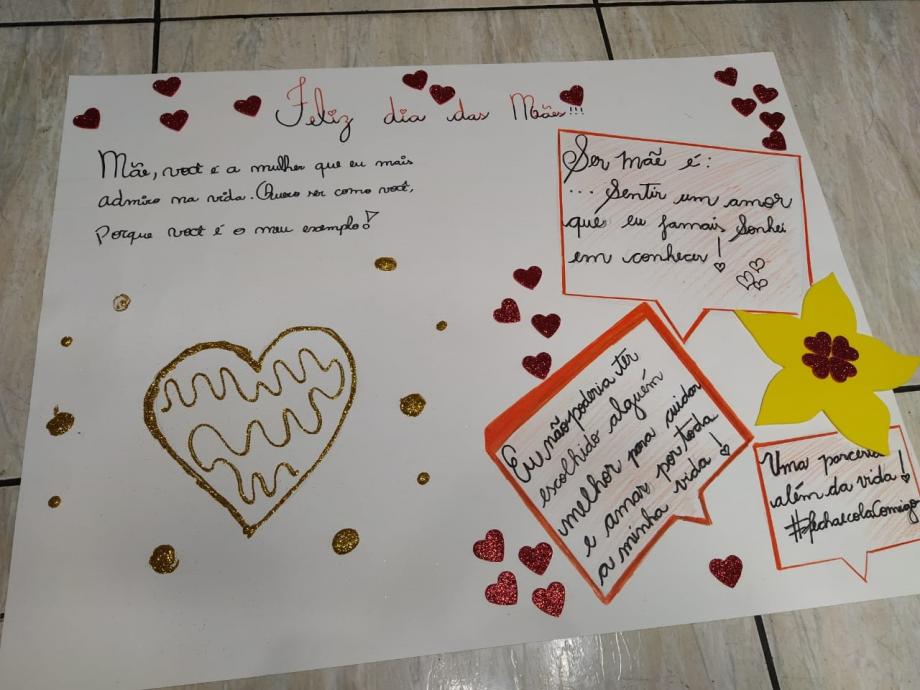 Feliz dia das Mães!!!
Mãe, você é a mulher que eu mais
admiro na vida. Quero ser como você,
Porque você é o meu exemplo!
Ser mãe é:
... Sentir um amor
que eu jamais Sonhei
em conhecer!
Eu não poderia ter
escolhido alguém
melhor para cuidar
e amar por toda
a minha vida!
Uma parceria
além da vida!
#fechaecolaComigo